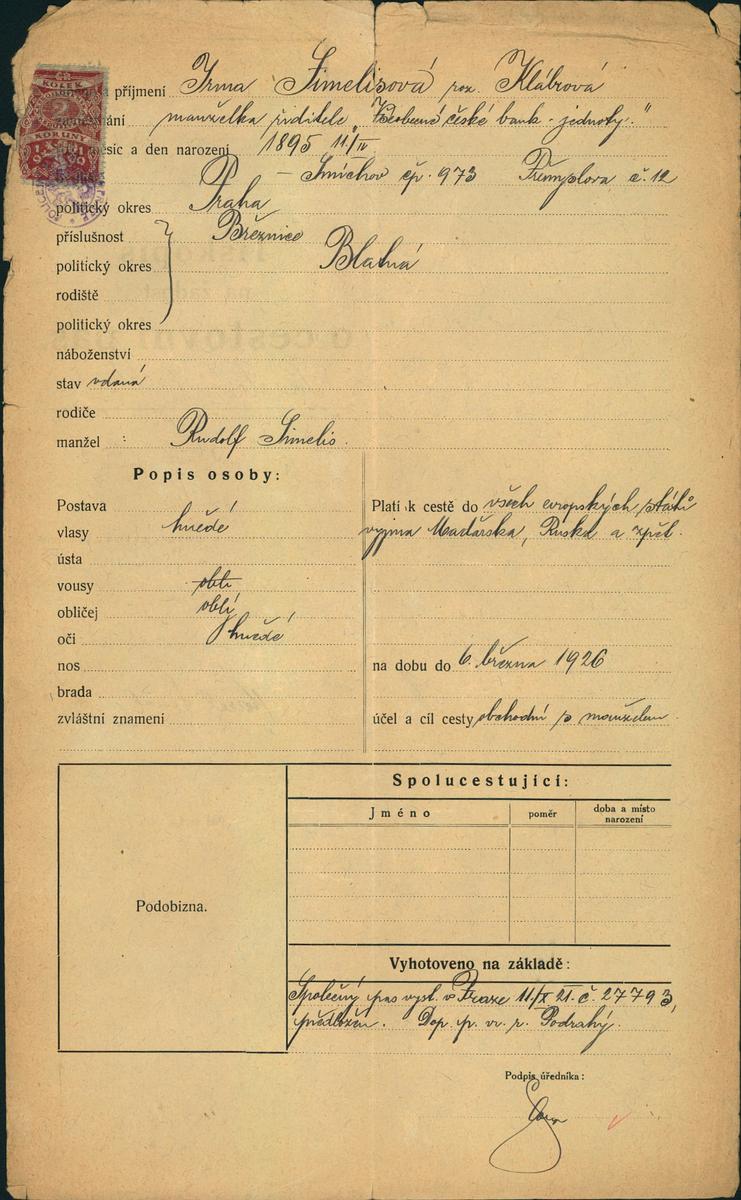 KOLEK
2
KORUNY
1919
příjmení Irma Simelisová roz. Klábrová
manželka ředitele „Všeobecné české bank. jednoty."
měsíc a den narození 1895 11/II
Smíchov čp. 973 Přemyslova č. 12
politický okres Praha
příslušnost Březnice
politický okres Blatná
rodiště
politický okres
náboženství
stav vdaná
rodiče
manžel : Rudolf Simelis.
Popis osoby:
Postava
vlasy hnědé
ústa
vousy oblí
obličej oblí
oči hnědé
nos
brada
zvláštní znamení
Platí k cestě do všech evropských států
vyjma Maďarska, Ruska a zpět.
na dobu do 6. března 1926
účel a cíl cesty obchodní s manželem
Spolucestující:
Jméno poměr doba a místo narození
Podobizna.
Vyhotoveno na základě:
Společný pas vyst. v Praze 11/X 21. č. 27793,
předložen. Dop. p. vr. r. Podrahý.
Podpis úředníka: